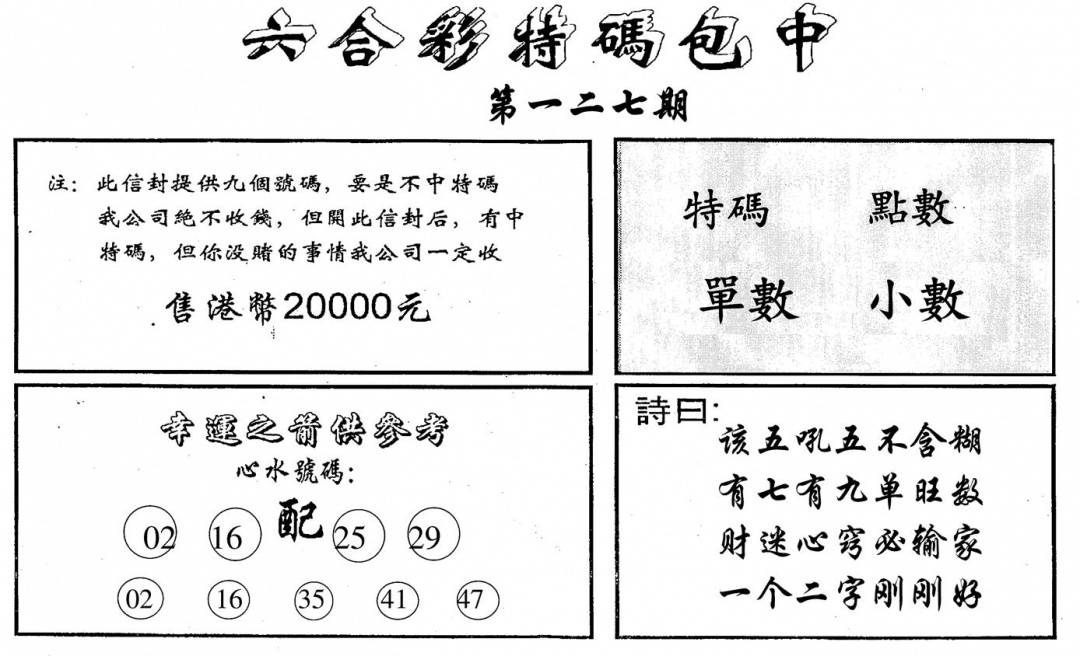 六合彩特碼包中
第一二七期
注：此信封提供九個號碼，要是不中特碼
我公司絕不收錢，但開此信封后，有中
特碼，但你没賭的事情我公司一定收
售港幣20000元
特碼 點數
單數 小數
幸運之箭供參考
心水號碼：
02 16 配 25 29
02 16 35 41 47
詩曰：
该五吼五不含糊
有七有九单旺数
财迷心窍必输家
一个二字刚刚好